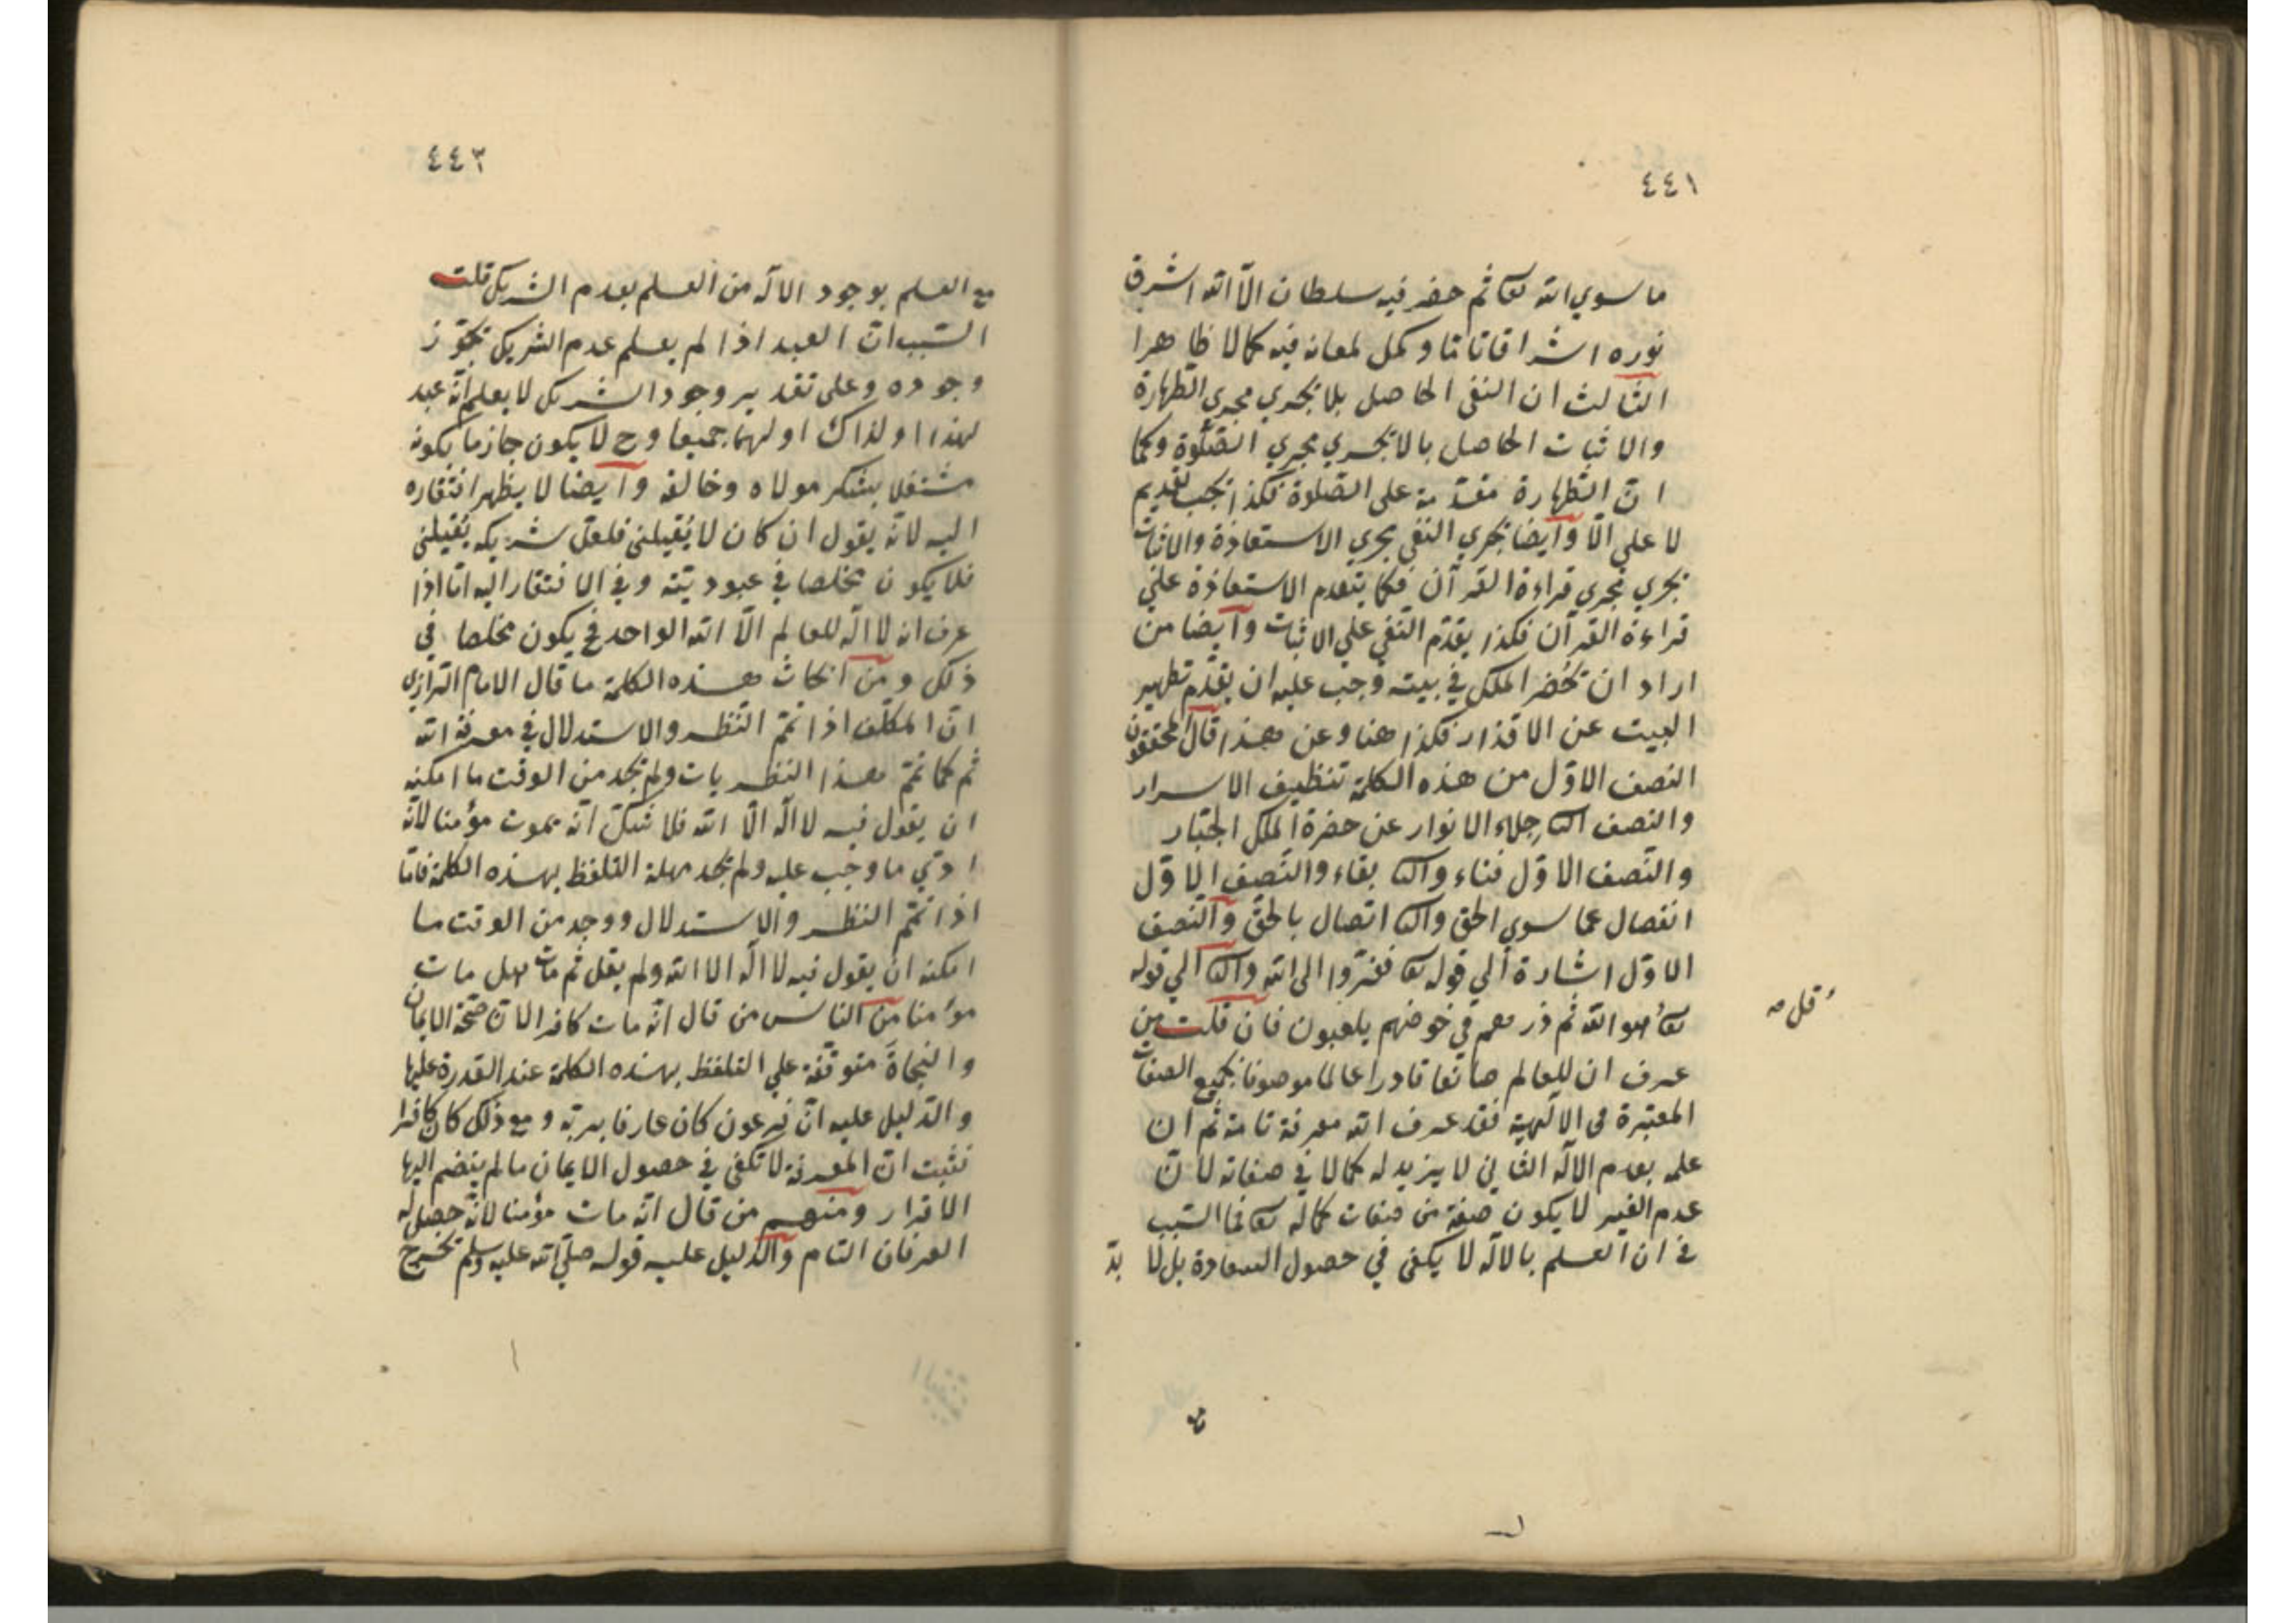 ٤٤١
ما سوي الله تعا ثم حضر فيه سلطان الا الله اشرق
نوره اشراقا تاما وكمل لمعانه فيه كمالا ظاهرا
الثالث ان النفى الحاصل بلا يجري مجري الطهارة
والاثبات الحاصل بالا يجري مجري الصلوة وكما
ان الطهارة مقدمة على الصلوة فكذا يجب تقديم
لا على الّا وايضا يجري النفى مجري الاستعاذة والاثبات
يجري مجري قراءة القرآن فكما يتقدم الاستعاذة علي
قراءة القرآن فكذا يقدّم النّفي علي الاثبات وايضا من
اراد ان يحُضر الملك في بيته وجب عليه ان يقدّم تطهير
البيت عن الاقذار فكذا هنا وعن هذا قال المحققون
النصف الاوّل من هذه الكلمة تنظيف الاسرار
والنصف الثا جلاء الانوار عن حضرة الملك الجبّار
والنّصف الاوّل فناء والثا بقاء والنّصف الاوّل
انفصال عما سوي الحق والثا اتصال بالحقّ والنّصف
الاوّل اشارة الي قوله تعا ففرّوا الى الله والثا الي قوله
تعا الله ثم ذرهم في خوضهم يلعبون فان قلت من
قل صـ
عرف ان للعالم صانعا قادرا عالما موصوفا بجميع الصفات
المعتبرة فى الالٓهية فقد عرف الله معرفة تامة ثم ان
علمه بعدم الالٓه الثاني لا يزيد له كمالا في صفاته لانّ
عدم الغير لا يكون صفة من صفات كماله تعا فما السّبب
في ان العلم بالالٓه لا يكفى في حصول السعادة بل لا بدّ
٤٤٣
مع العلم بوجود الالٓه من العلم بعدم الشريك قلت
السّبب انّ العبد اذا لم يعلم عدم الشريك يجوّز
وجوده وعلى تقدير وجود الشريك لا يعلم انّه عبد
لهذا او لذاك او لهما جميعا وح لا يكون جازما بكونه
مشتغلا بشكر مولاه وخالقه وايضا لا يظهر افتقاره
اليه لانّه يقول ان كان لا يُقيلنى فلعلّ شريكه يُقيلنى
فلا يكون مخلصا في عبوديّته وفي الافتقار اليه امّا اذا
عرف ان لا الٓه للعالم الّا الله الواحد فح يكون مخلصا في
ذلك ومن ابحاث هذه الكلمة ما قال الامام الرّازي
انّ المكلّف اذا تمّم النّظر والاستدلال في معرفة الله
ثم كما تمّم هذا النظر مات ولم يجد من الوقت ما امكنه
ان يقول فيه لا الٓه الّا الله فلا شكّ انّه يموت مؤمنا لانّه
ادّي ما وجب عليه ولم يجد مهلة التلفظ بهذه الكلمة فامّا
اذا تمّم النظر والاستدلال ووجد من الوقت ما
امكنه ان يقول فيه لا الٓه الا الله ولم يقل ثم مات هل مات
مؤمنا من النّاس من قال انّه مات كافرا لانّ صحّة الايمان
والنجاةَ متوقّفة علي التلفظ بهذه الكلمة عند القدرة عليها
والدّليل عليه انّ فرعون كان عارفا بربّه ومع ذلك كان كافرا
فثبت انّ المعرفة لا تكفي في حصول الايمان ما لم ينضم اليها
الاقرار ومنهم من قال انّه مات مؤمنا لانّه حصل له
العرفان التام والدّليل عليه قوله صلّي الله عليه وسلم يخرج